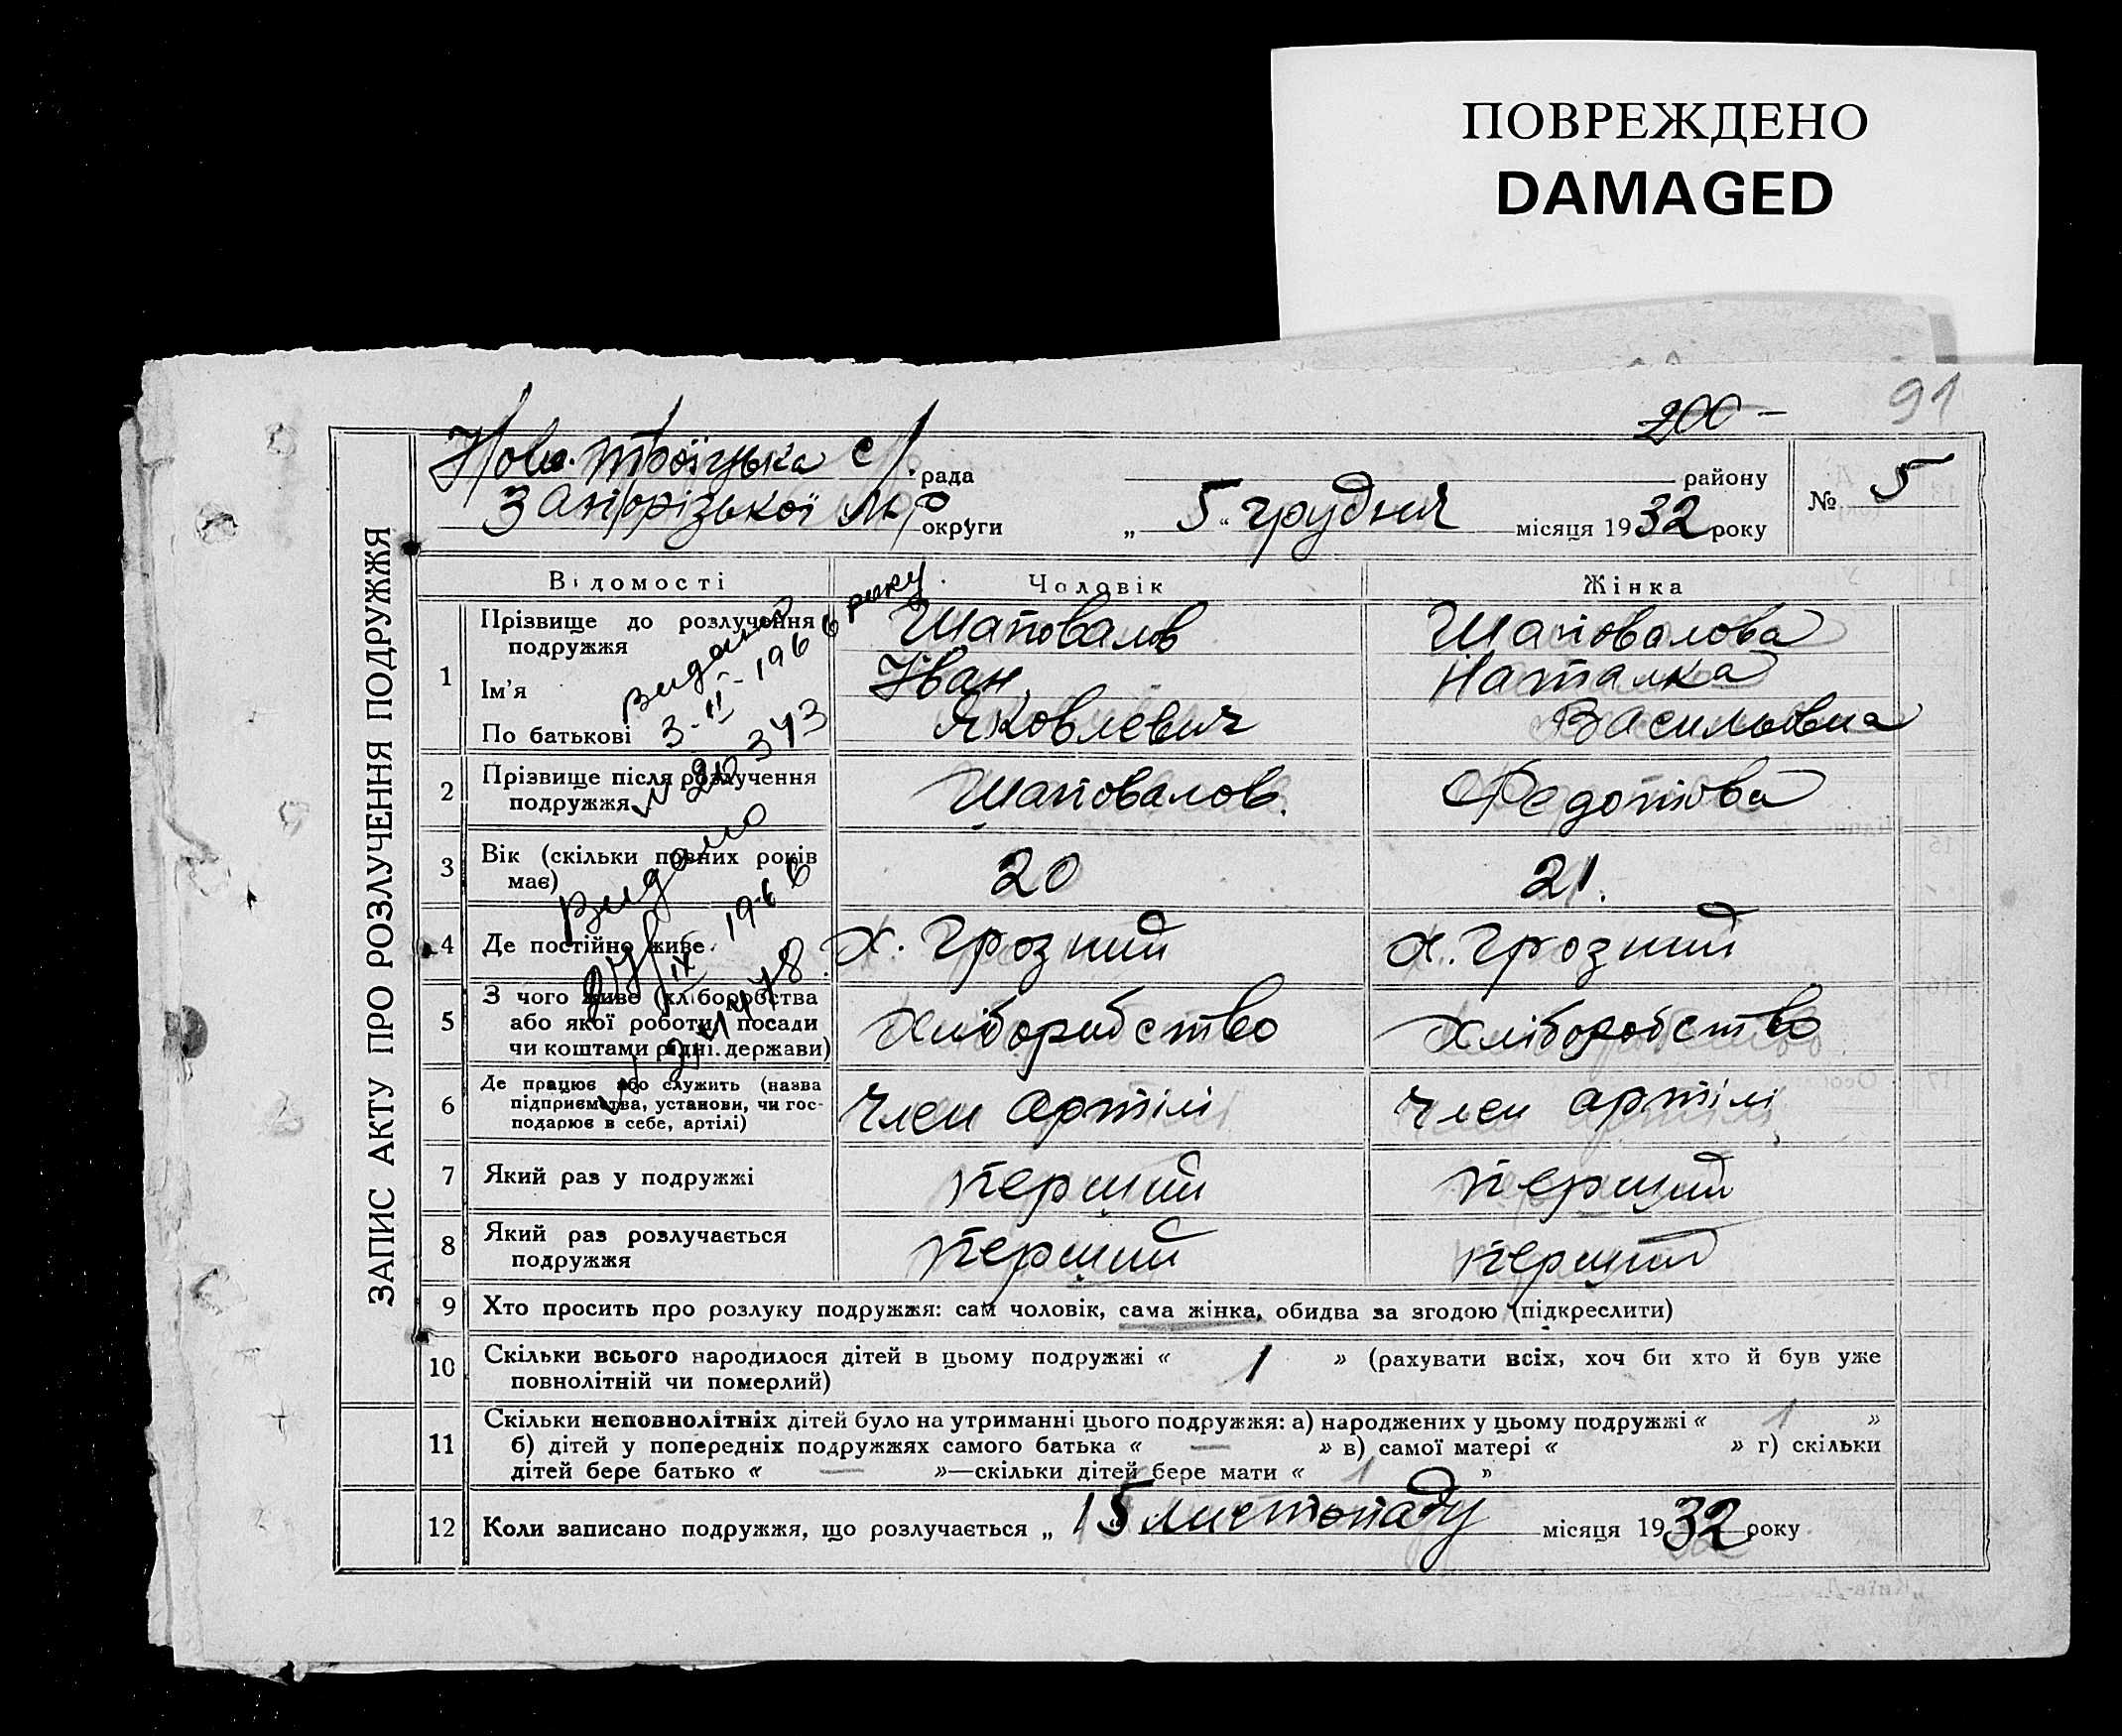 ПОВРЕЖДЕНО
DAMAGED
91
200 –
Ново-Троїцька с/. рада району
Запорізької м/р округи „ 5 “ грудня місяця 1932 року
№ 5
ЗАПИС АКТУ ПРО РОЗЛУЧЕННЯ ПОДРУЖЖЯ
Відомості Чоловік Жінка
1 Прізвище до розлучення подружжя Шаповалов Шаповалова
Ім'я Іван Наталка
По батькові Яковлевич Васильовна
2 Прізвище після розлучення подружжя Шаповалов. Федотова
3 Вік (скільки повних років має) 20 21.
4 Де постійно живе х. Грозний х. Грозний
5 З чого живе (хліборобства
або якої роботи, посади
чи коштами рідні. держави) хліборобство хліборобство
6 Де працює або служить (назва
підприємства, установи, чи гос-
подарює в себе, артілі) член артілі член артілі
7 Який раз у подружжі перший перший
8 Який раз розлучається
подружжя перший перший
видано
3-II-1966 року
видано
IX 1966
9 Хто просить про розлуку подружжя: сам чоловік, сама жінка, обидва за згодою (підкреслити)
10 Скільки всього народилося дітей в цьому подружжі « 1 » (рахувати всіх, хоч би хто й був уже
повнолітній чи померлий)
11 Скільки неповнолітніх дітей було на утриманні цього подружжя: а) народжених у цьому подружжі « 1 »
б) дітей у попередніх подружжях самого батька « — » в) самої матері « » г) скільки
дітей бере батько « — »—скільки дітей бере мати « 1 »
12 Коли записано подружжя, що розлучається „ 15 листопаду місяця 1932 року